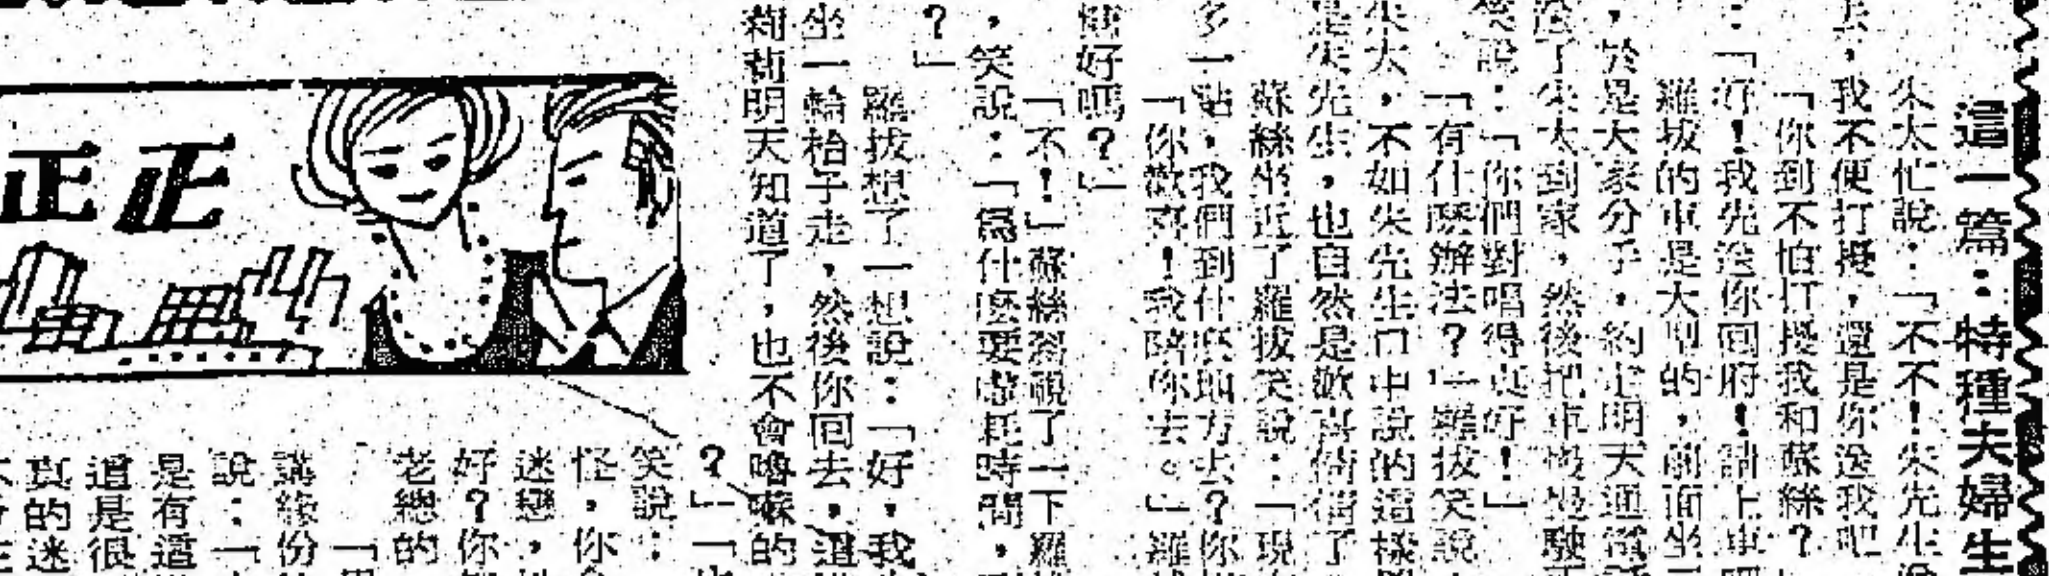 這一篇：特種夫婦生
朱太忙說：「不不！朱先生
去，我不便打擾，還是你送我吧
「你到不怕打擾我和蘇絲？
：「好！我先送你回府！請上車
羅拔的車是大型的，前面坐
，於是大家分手，約定明天通電話
送了朱太到家，然後把車
笑說：「你們對唱得真好！」
「有什麼辦法？」羅拔笑說
朱太，不如朱先生口中說的這樣
是朱先生，也自然是歡喜
蘇絲坐近了羅拔笑說：「現
多一點，我們到什麼地方去？你
「你歡喜！我陪你去。」羅
好嗎？」
「不！」蘇絲
了一下羅
，笑說：「為什麼要虛耗時間，
？」
羅拔想了一想說：「好，我
坐一輪枱子走，然後你回去，還
莉莉明天知道了，也不會嚕囌的
正正
？」「
笑說：
怪，你
迷戀，
好？你
老總的
「
講緣份
說：「
是有這
道是很
真的迷